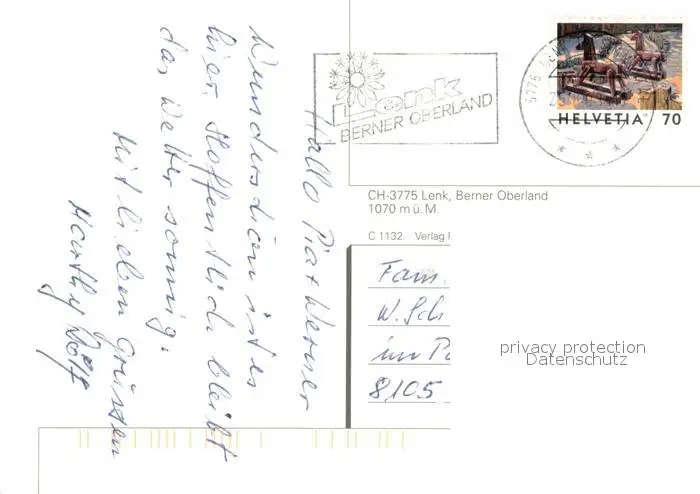 Hallo Pia + Werner
Wunderschön ist es
hier. Hoffentlich bleibt
das Wetter sonnig.
Mit lieben Grüssen
Rolf
Lenk
BERNER OBERLAND
HELVETIA 70
CH-3775 Lenk, Berner Oberland
1070 m ü. M.
C 1132 Verlag
Fam.
W. Sch
im
8105
privacy protection
Datenschutz